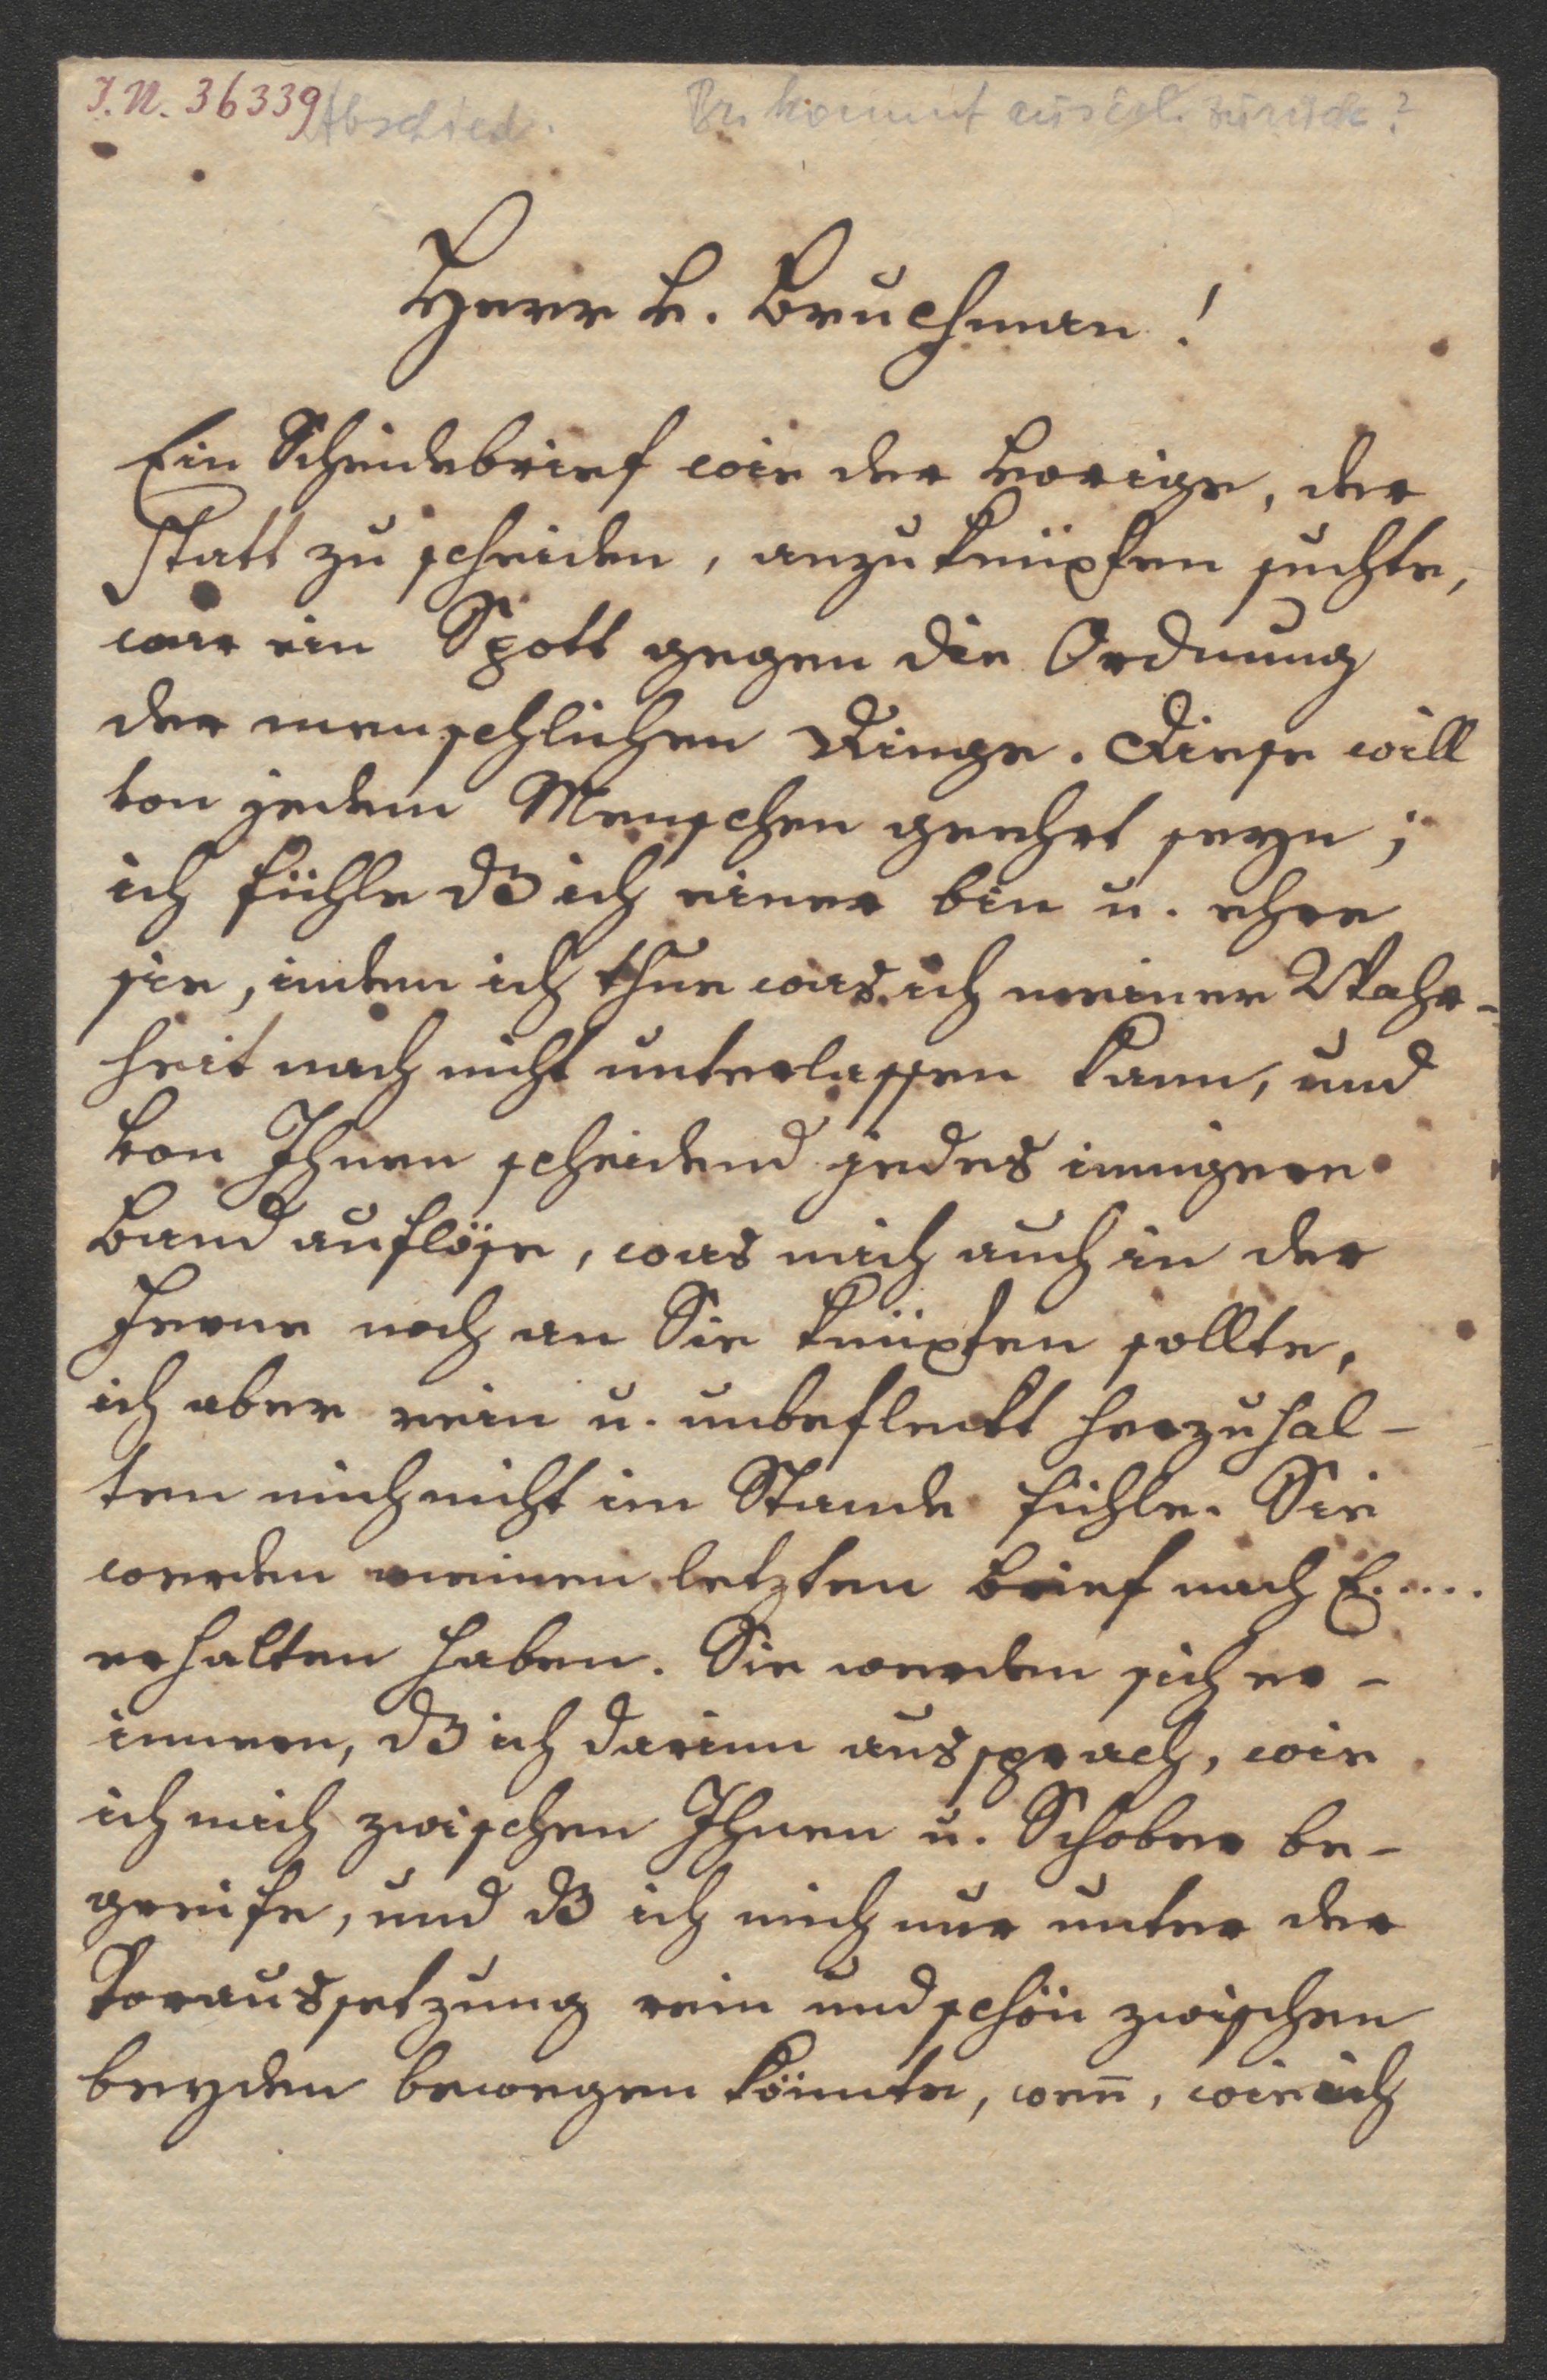 I. N. 36339 Abschied. Br. kommt zurück?
Herr v. Bruchman!
Ein Scheidebrief wie der vorige, der
statt zu scheiden, anzuknüpfen suchte,
war ein Spott gegen die Ordnung
der menschlichen Dinge. Diese will
von jedem Menschen geehrt seyn;
ich fühle dß ich einer bin u. ehre
sie, indem ich thue was ich meiner Wahr-
heit nach nicht unterlassen kann, und
von Ihnen scheidend jedes innigere
Band auflöse, was mich auch in der
Ferne noch an Sie knüpfen sollte,
ich aber rein u. unbefleckt herzuhal-
ten mich nicht im Stande fühle. Sie
werden meinen letzten Brief nach E.....
erhalten haben. Sie werden sich er-
innern, dß ich darinn aussprach, wie
ich mich zwischen Ihnen u. Schober be-
greife, und dß ich mich nur unter der
Voraussetzung rein und schön zwischen
beyden bewegen könnte, wen̄, wie ich